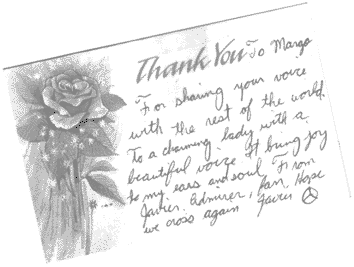 Thank You To Margo
For sharing your voice
with the rest of the world.
To a charming lady with a
beautiful voice. It bring joy
to my ears and soul. From
Javier. Admirer, fan. Hope
we cross again Javier